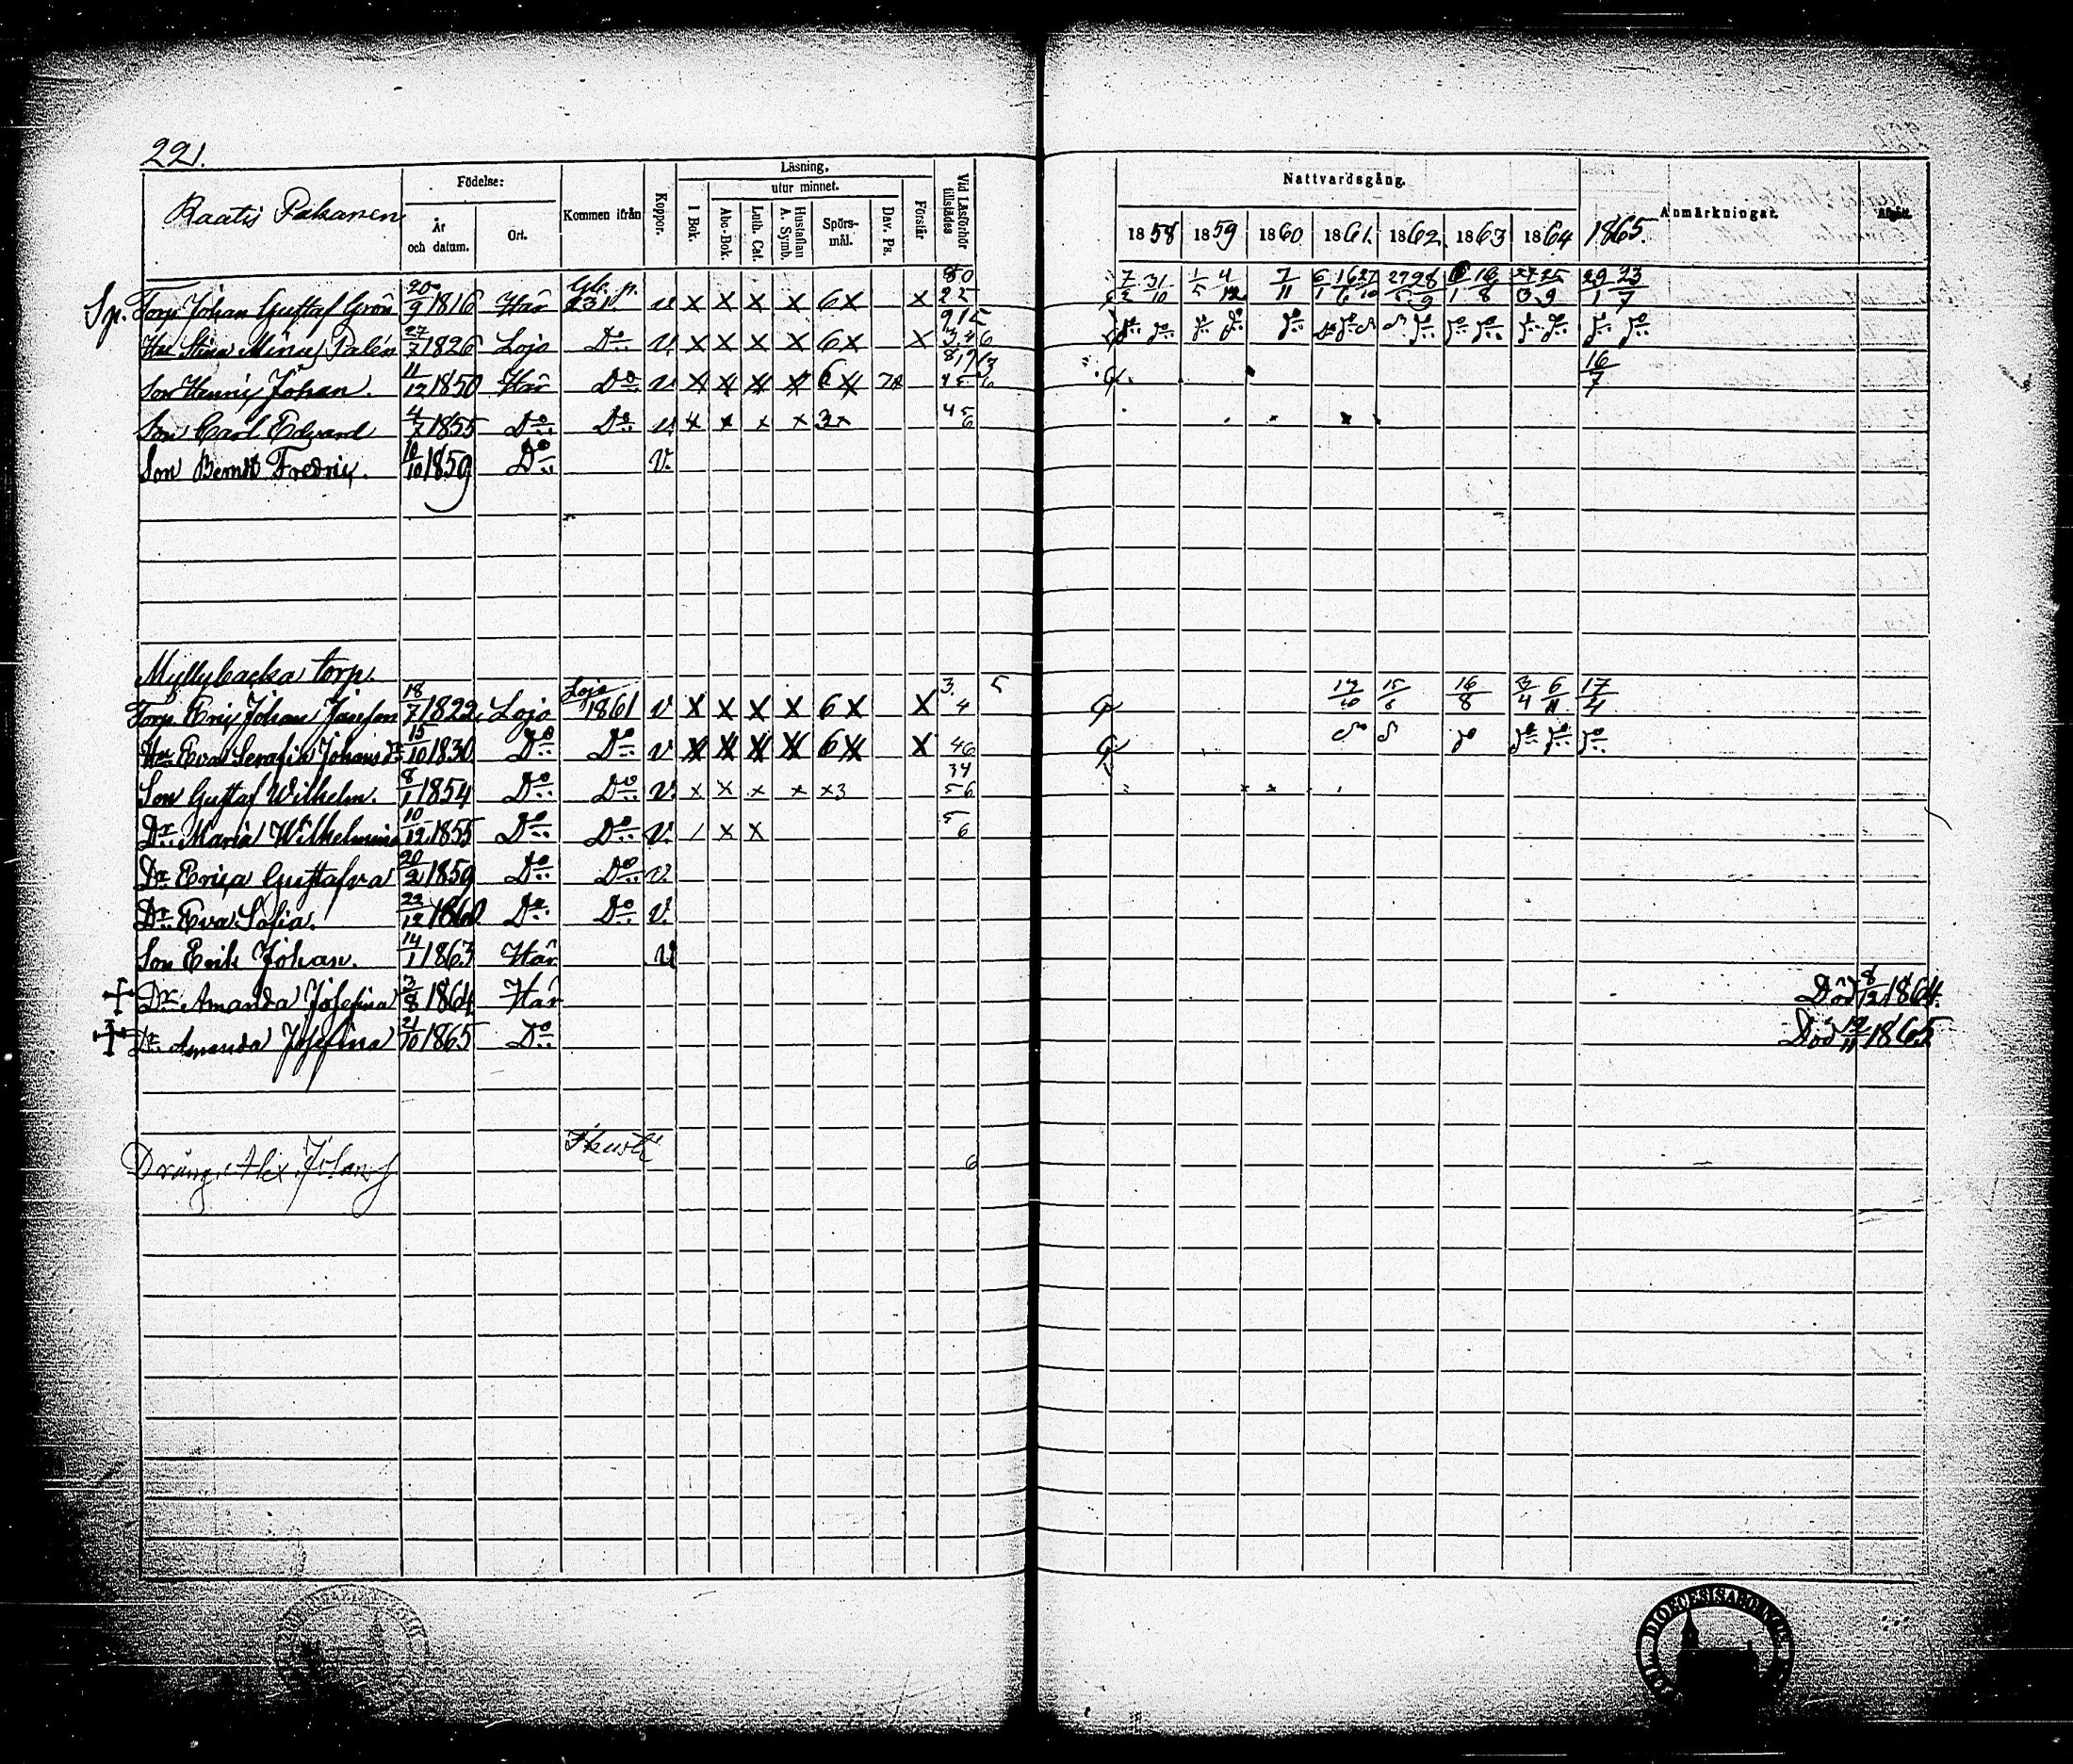 221.
Raatis Pakanen
Födelse:
År och datum.
Ort.
Kommen ifrån
Koppor.
Läsning,
I Bok.
utur minnet.
Abc-Bok.
Luth. Cat.
Hustaflan A. Symb.
Spörsmål.
Dav. Ps.
Förstår
Vid Läsförhör tillstädes
Nattvardsgång.
1858 1859 1860 1861. 1862. 1863 1864 1865.
Anmärkningar.
Afgått.
Torp Johan Gustaf Grön 20/9 1816 Här 231. v x x x x 6x x 7/2 31/10 1/5 4/12 7/11 6/1 16/6 27/10 16/8 29/1 23/7
Stina Palén 27/7 1826 Lojo Do v x x x x 6x x
Son Henric Johan. 11/12 1850 Här Do v x x x x 6x 16/7
Son Carl Edvard 1855 Do Do v x x x x 3x
Son Bernt Fredric. 10/10 1859 Do v.
Myllybacka torp.
Torp Eric Johan Josefson 18/7 1822 Lojo Lojo 1861 v x x x x 6x x 4 13/10 15/6 16/8 3/4 6/11 17/4
Hu Eva Serafia Johansdr 15/10 1830 Do Do v x x x x 6x x 46
Son Gustaf Wilhelm. 8/1 1854 Do Do v. x x x x x3 34 56
Dr Maria Wilhelmina 10/12 1855 Do Do v. / x x 5 6
Dr Erica Gustafva 20/2 1859 Do Do v.
Dr Eva Sofia. 23/12 1860 Do Do v.
Son Erik Johan. 14/1 1863 Här v
Dr Amanda Josefina 3/8 1864 Här Död 8/12 1864.
Dr Amanda Josefina 21/10 1865 Do Död 19/11 1865.
Dräng Alex. Johans 6